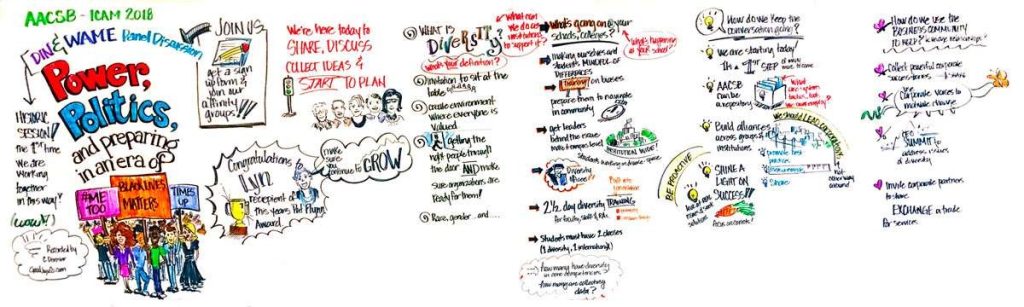 AACSB - ICAM 2018
DIN & WAME Panel Discussion
Power,
Politics,
and preparing
in an era of
#ME
TOO
BLACK LIVES
MATTERS
TIMES
UP
HISTORIC
SESSION!
the 1st time
We are
working
together
in this way!
(wow!)
Recorded by
JOIN US
Get a sign
up form &
join our
affinity
groups!!
We're here today to
SHARE, DISCUSS
COLLECT IDEAS &
START TO PLAN
Congratulations to
Lynn
recipient of
this years
Award!
make
sure
you
continue to
GROW
WHAT IS
DIVERSITY?
what's your definition?
What can
we do as
institutions
to support it?
Invitation to sit at the
table
create environment
where everyone is
Valued
getting the
right people through
the door AND make
sure organizations are
Ready for them!
Race, gender... and....
What's going on @ your
schools, colleges?
What's happening
@ your school?
making ourselves and
students MINDFUL OF
DIFFERENCES
Training on biases
prepare them to navigate
in community
get leaders
behind the issue
INSTITUTIONAL WIDE!
Diversity
2 1/2 day diversity TRAINING
for faculty, staff &
Students must have 2 classes
(1 diversity, 1 international)
how many have diversity
in core competencies
how many are collecting
data?
BE PROACTIVE
How do we keep the
conversation going?
We are starting today!
It's a 1st STEP of
many more to come
AACSB
can be a
repository
Build alliances
across groups &
institutions
We should LEAD
promote best
practices
Share
not
other way
around
SHINE A
LIGHT ON
SUCCESS!!
How do we use the
BUSINESS COMMUNITY
TO HELP?
Collect powerful corporate
success forms
Corporate voices to
motivate change
CEO
SUMMIT to
address issues
of diversity
Invite corporate partners
to share
EXCHANGE a trade
for services